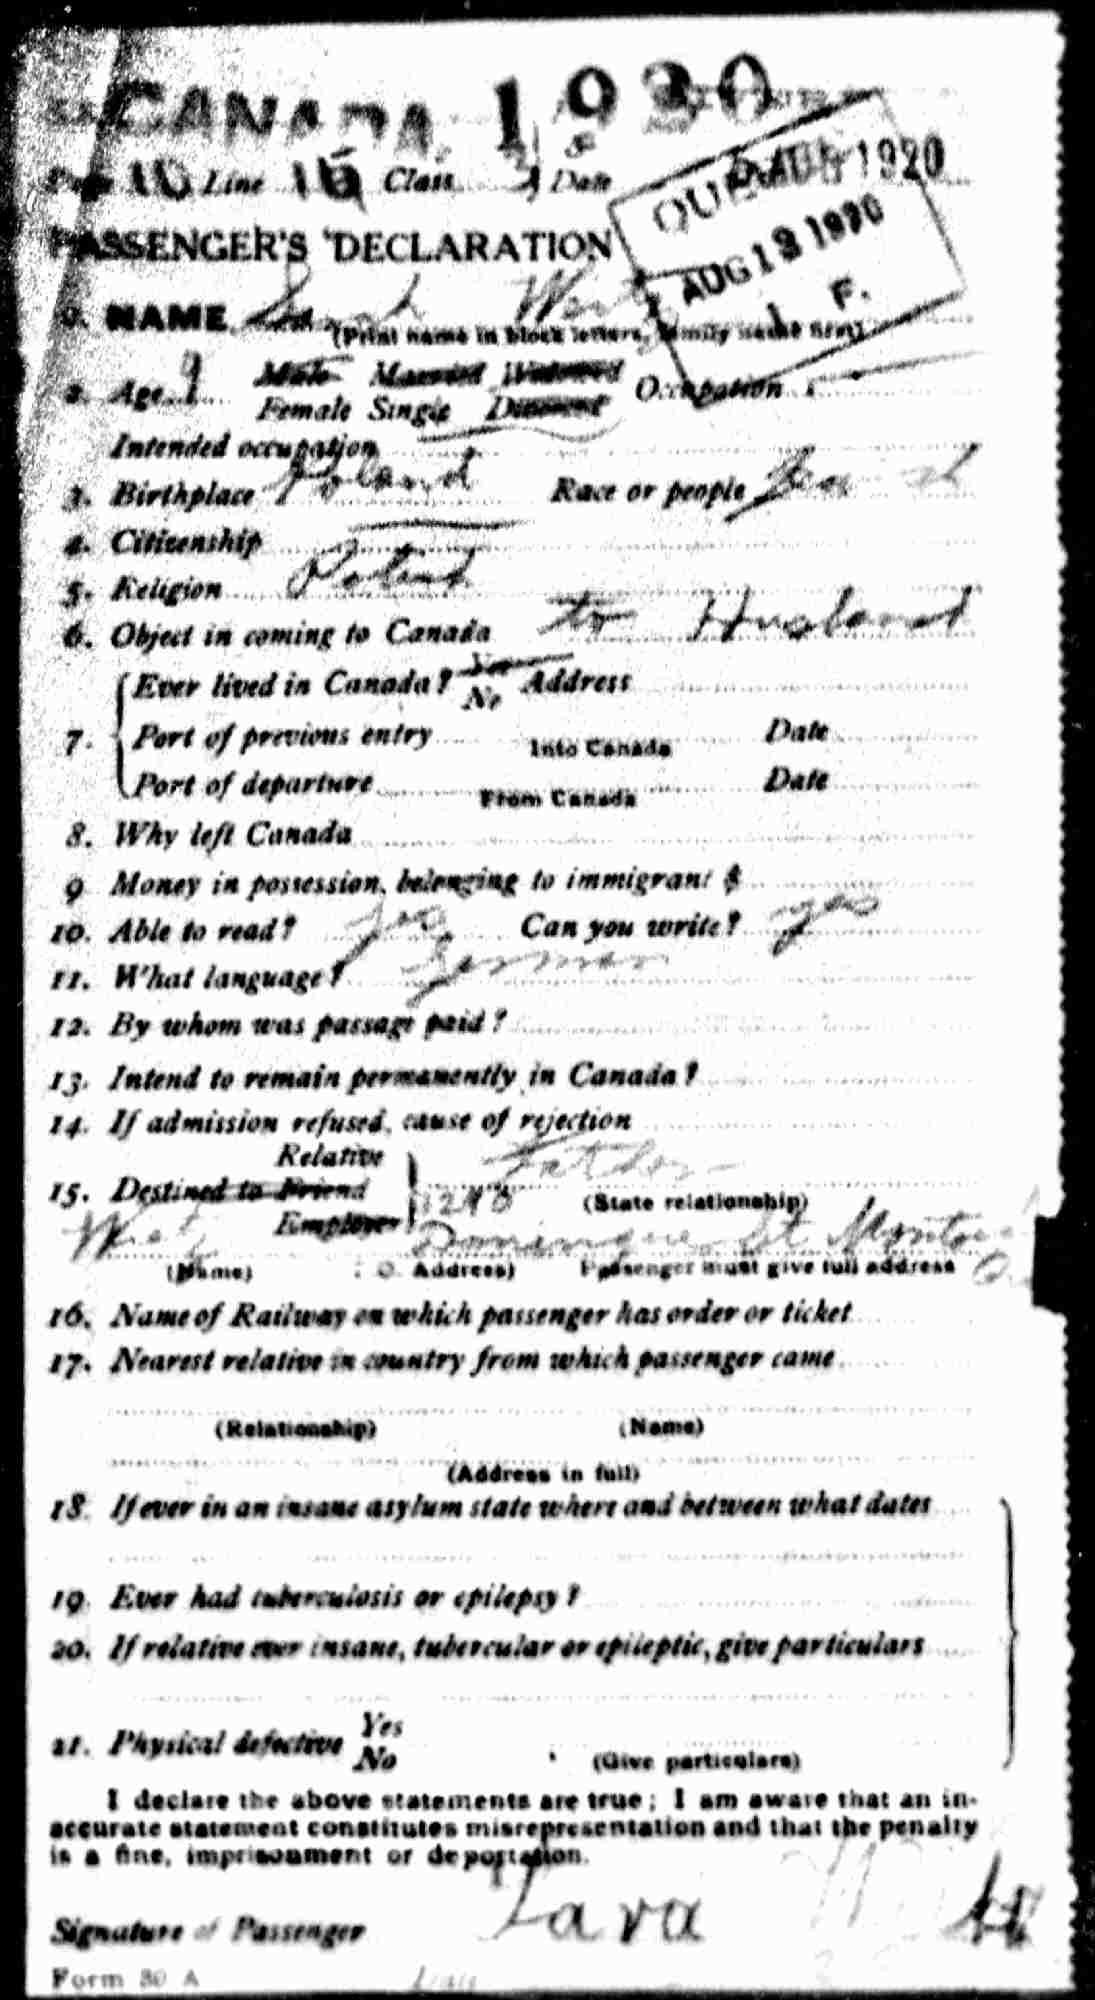 CANADA 1920
Page 10 Line 16 Class 3 Date 1920
QUE
AUG 13 1920
F.
PASSENGER'S DECLARATION
NAME Sarah
(Print name in block letters, family name first)
2. Age 9 Male Married Widowed Occupation
Female Single Divorced
Intended occupation
3. Birthplace Poland Race or people
4. Citizenship
5. Religion Poland
6. Object in coming to Canada to Husband
7. Ever lived in Canada? Yes No Address
Port of previous entry Into Canada Date
Port of departure From Canada Date
8. Why left Canada
9 Money in possession, belonging to immigrant $
10. Able to read? yes Can you write? yes
11. What language? German
12. By whom was passage paid?
13. Intend to remain permanently in Canada?
14. If admission refused, cause of rejection
Relative Father
15. Destined to Friend 1240 (State relationship)
Employer Dominique St Montreal
(Name) Address) Passenger must give full address
16. Name of Railway on which passenger has order or ticket
17. Nearest relative in country from which passenger came
(Relationship) (Name)
(Address in full)
18. If ever in an insane asylum state where and between what dates
19. Ever had tuberculosis or epilepsy?
20. If relative ever insane, tubercular or epileptic, give particulars
21. Physical defective Yes
No (Give particulars)
I declare the above statements are true; I am aware that an in-
accurate statement constitutes misrepresentation and that the penalty
is a fine, imprisonment or deportation.
Signature of Passenger Sara
Form 30 A